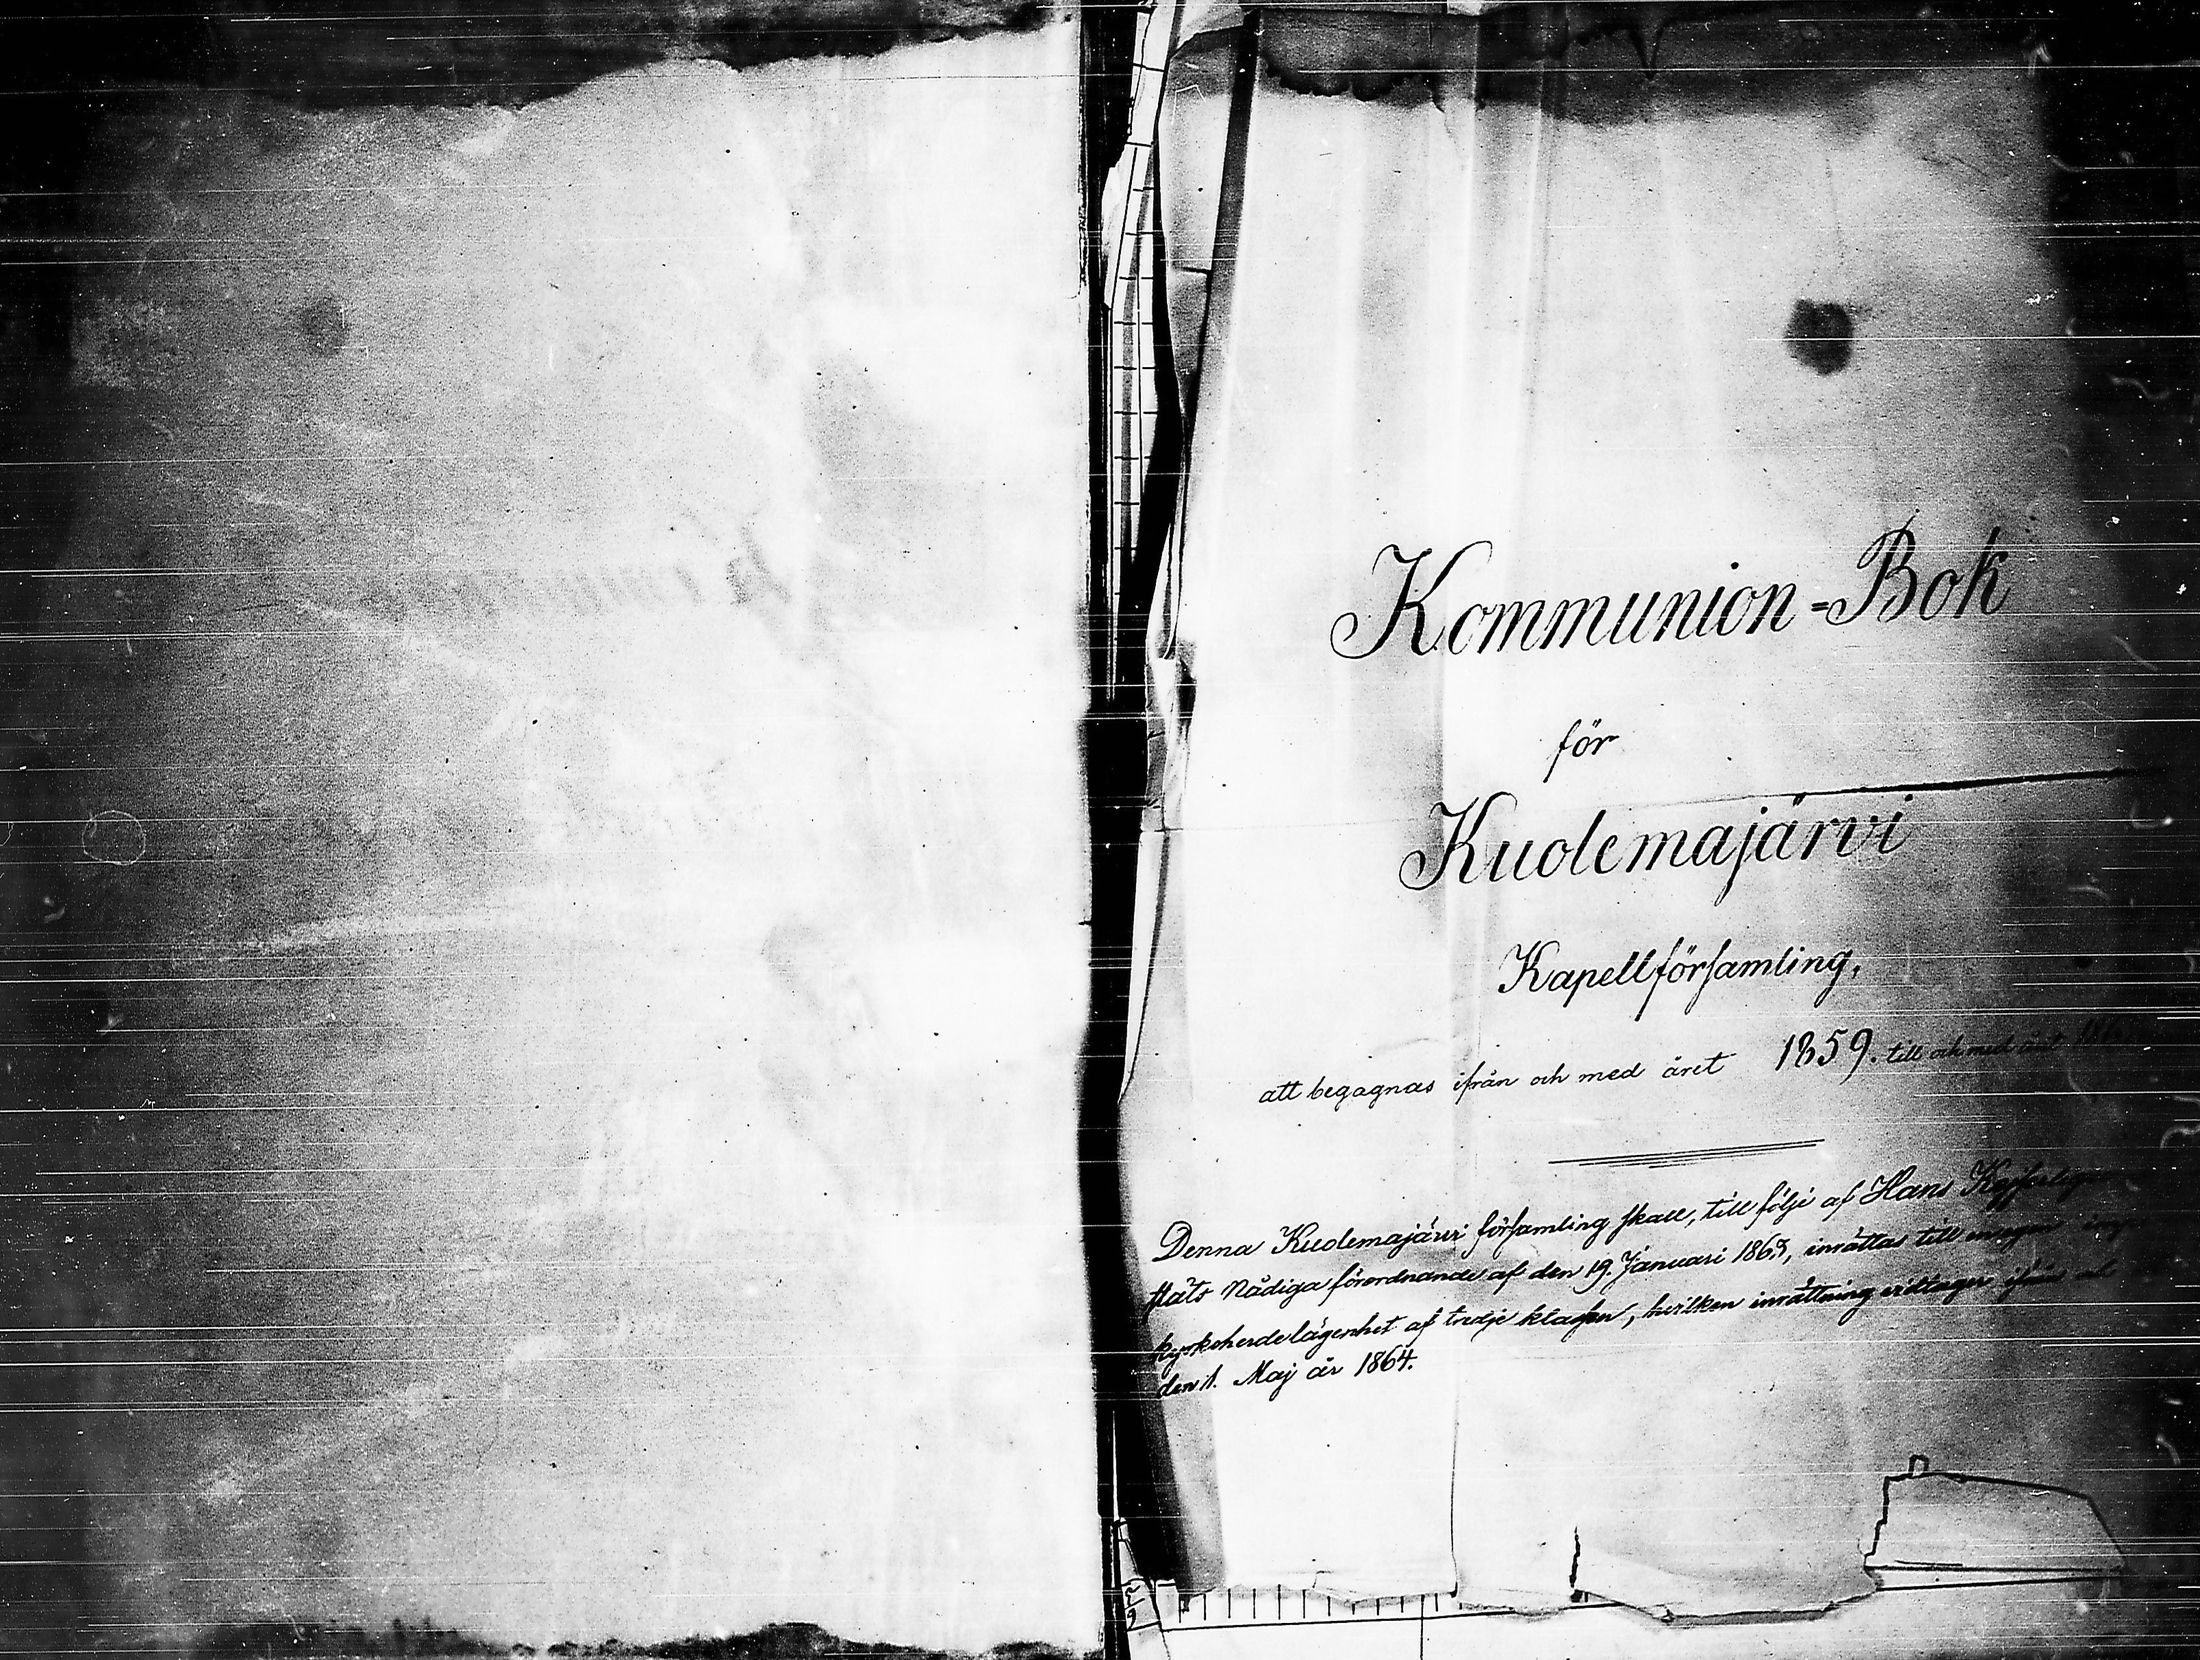 Kommunion-Bok
för
Kuolemajärvi
Kapellförsamling,
att begagnas ifrån och med året 1859. till och med året
Denna Kuolemajärvi församling skall, till följe af Hans
Nådiga förordnande af den 19. Januari 1863, inrättas till
kyrkoherdelägenhet af tredje klassen, hvilken inrättning vidtager ifrån
den 1. Maj år 1864.